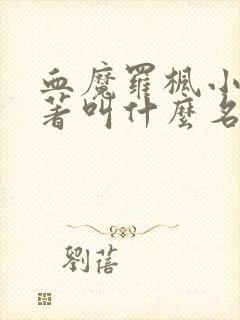 血魔羅楓小
著叫什麼名
劉蓓